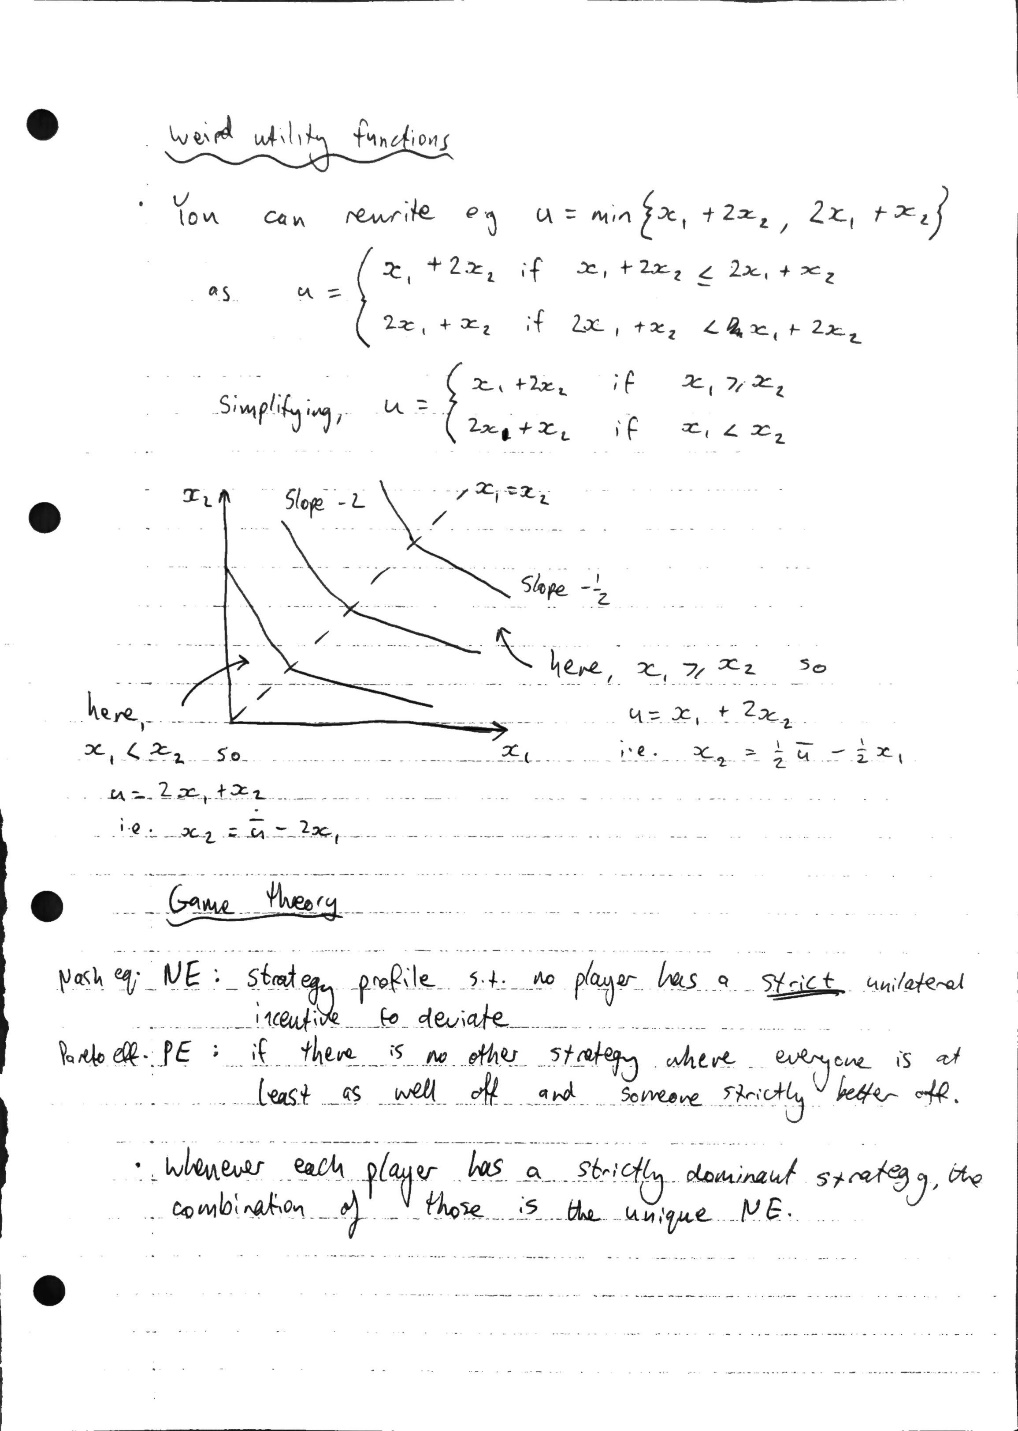 Weird utility functions
• You can rewrite eg u = min{x₁ + 2x₂, 2x₁ + x₂}
as u = { x₁ + 2x₂ if x₁ + 2x₂ ≤ 2x₁ + x₂
2x₁ + x₂ if 2x₁ + x₂ < x₁ + 2x₂
Simplifying, u = { x₁ + 2x₂ if x₁ ⩾ x₂
2x₁ + x₂ if x₁ < x₂
x₂
Slope -2
x₁ = x₂
Slope -½
here, x₁ ⩾ x₂ so
u = x₁ + 2x₂
i.e. x₂ = ½ ū - ½ x₁
x₁
here,
x₁ < x₂ so
u = 2x₁ + x₂
i.e. x₂ = ū - 2x₁
Game theory
Nash eq. NE: strategy profile s.t. no player has a strict unilateral
incentive to deviate
Pareto eff. PE: if there is no other strategy where everyone is at
least as well off and someone strictly better off.
• Whenever each player has a strictly dominant strategy, the
combination of those is the unique NE.